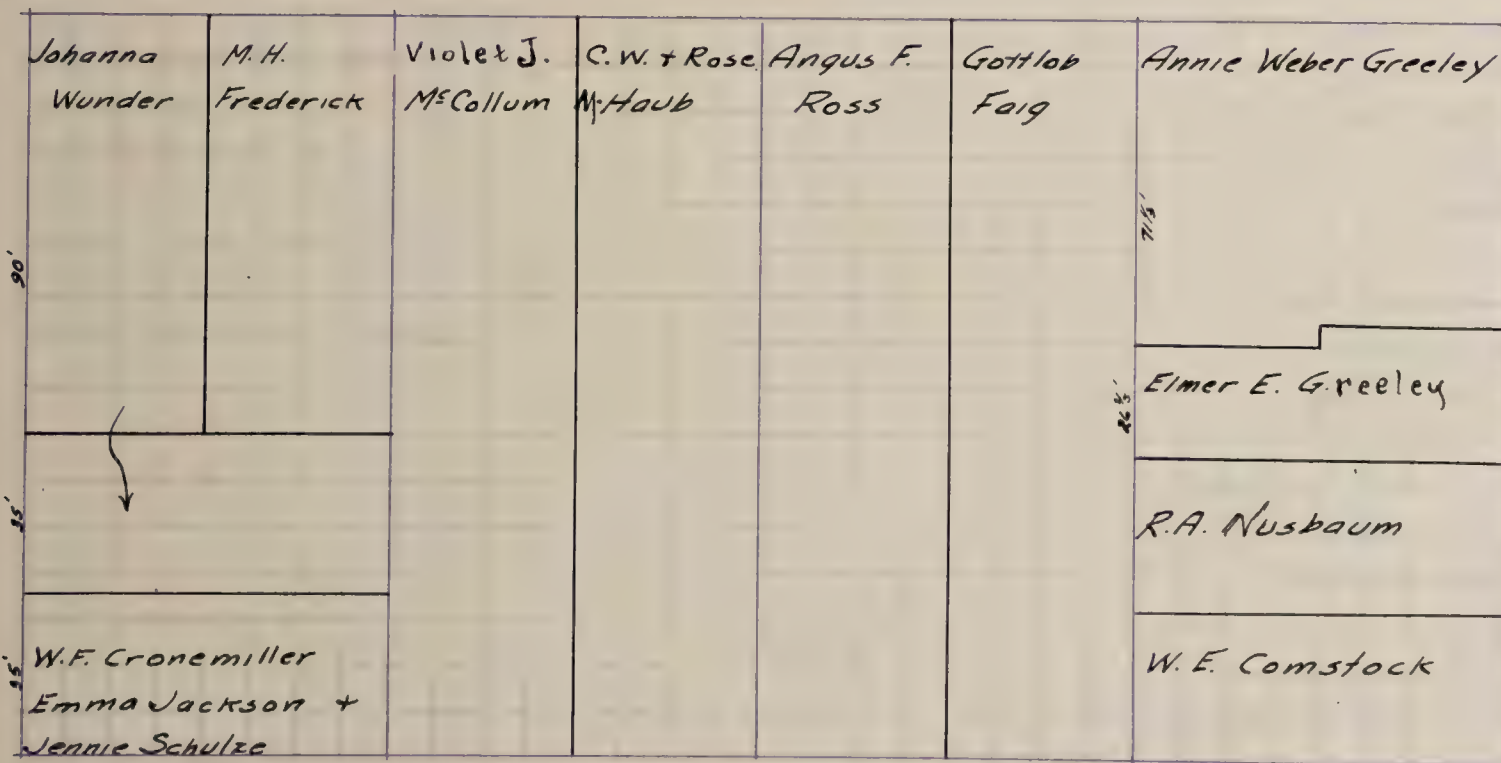 Johanna
Wunder
M.H.
Frederick
Violet J.
McCollum
C.W. + Rose
M. Haub
Angus F.
Ross
Gottlob
Faig
Annie Weber Greeley
90'
71⅓'
Elmer E. Greeley
35'
R.A. Nusbaum
35'
W.F. Cronemiller
Emma Jackson +
Jennie Schulze
W.E. Comstock